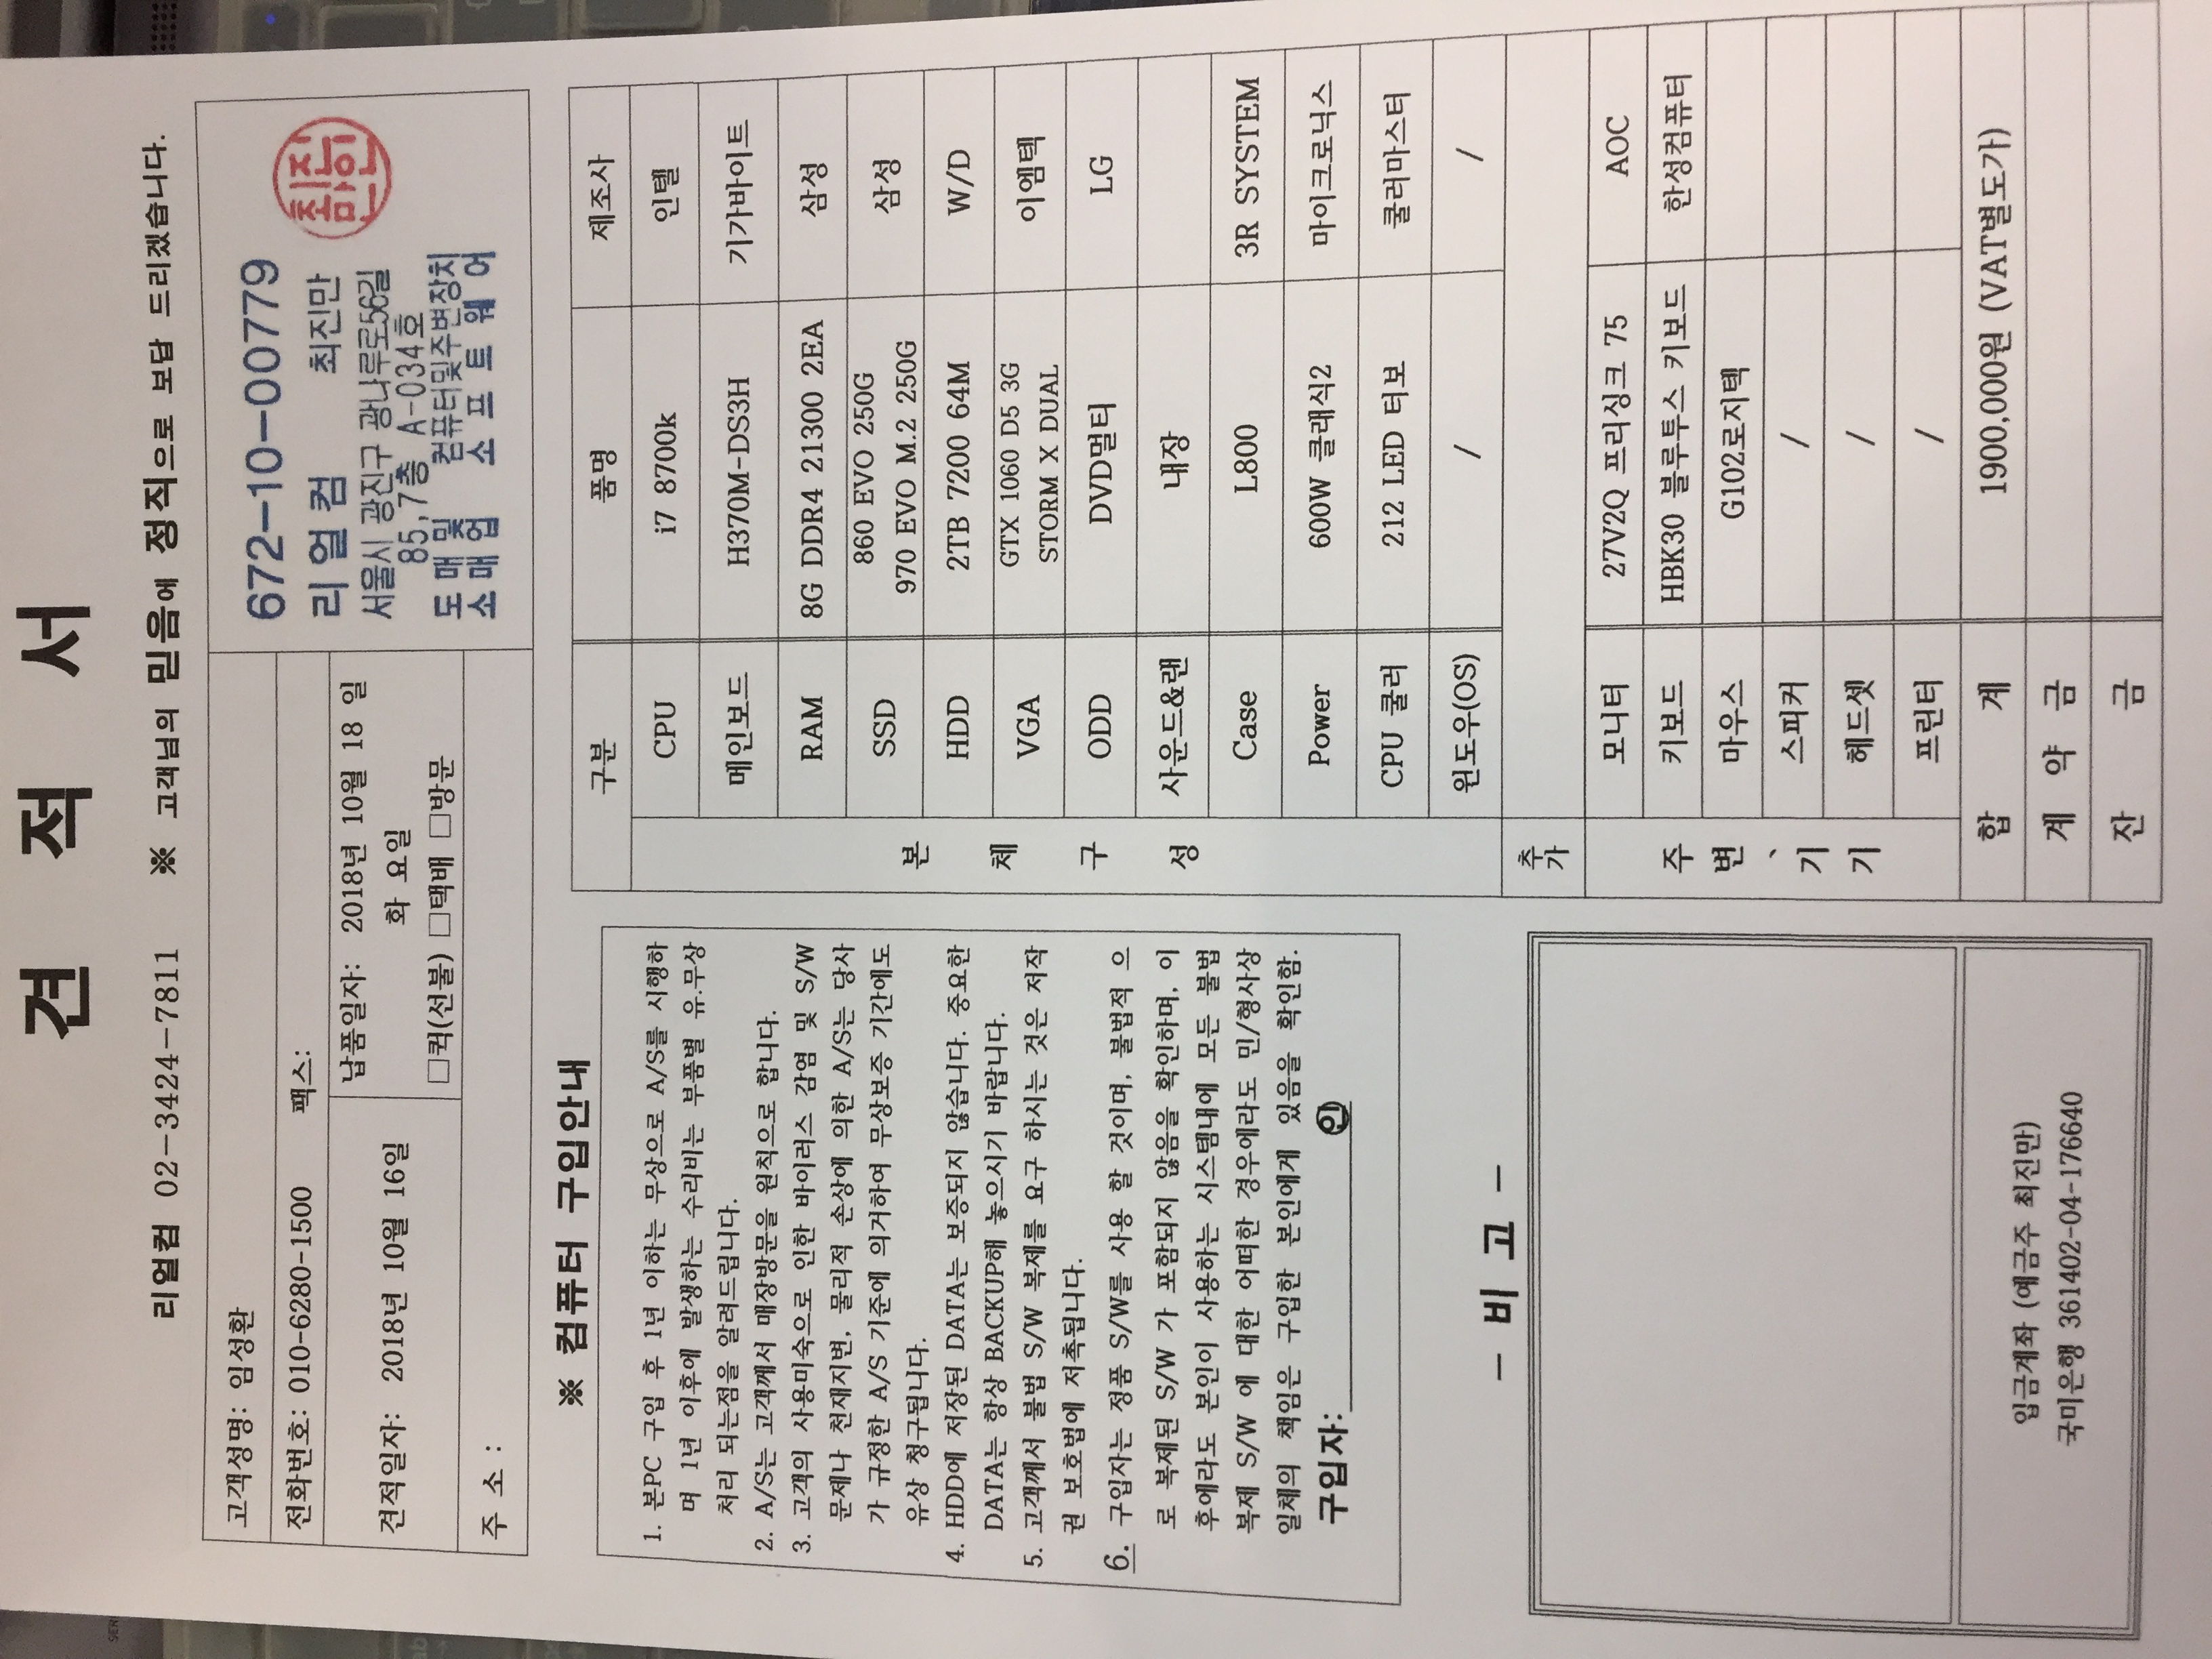 견 적 서
리얼컴 02-3424-7811 ※ 고객님의 믿음에 정직으로 보답 드리겠습니다.
고객성명: 임성환
전화번호: 010-6280-1500 팩스:
견적일자: 2018년 10월 16일
납품일자: 2018년 10월 18 일
화 요일
□퀵(선불) □택배 □방문
주 소 :
672-10-00779
리얼컴 최진만
서울시 광진구 광나루로56길
85,7층 A-034호
도매및 컴퓨터및주변장치
소매업 소프트웨어
※ 컴퓨터 구입안내
1. 본PC 구입 후 1년 이하는 무상으로 A/S를 시행하
며 1년 이후에 발생하는 수리비는 부품별 유.무상
처리 되는점을 알려드립니다.
2. A/S는 고객께서 매장방문을 원칙으로 합니다.
3. 고객의 사용미숙으로 인한 바이러스 감염 및 S/W
문제나 천재지변, 물리적 손상에 의한 A/S는 당사
가 규정한 A/S 기준에 의거하여 무상보증 기간에도
유상 청구됩니다.
4. HDD에 저장된 DATA는 보증되지 않습니다. 중요한
DATA는 항상 BACKUP해 놓으시기 바랍니다.
5. 고객께서 불법 S/W 복제를 요구 하시는 것은 저작
권 보호법에 저촉됩니다.
6. 구입자는 정품 S/W를 사용 할 것이며, 불법적 으
로 복제된 S/W 가 포함되지 않음을 확인하며, 이
후에라도 본인이 사용하는 시스템내에 모든 불법
복제 S/W 에 대한 어떠한 경우에라도 민/형사상
일체의 책임은 구입한 본인에게 있음을 확인함.
구입자: 인
- 비 고 -
입금계좌 (예금주 최진만)
국미은행 361402-04-176640
구분 품명 제조사
본 체 구 성
CPU i7 8700k 인텔
메인보드 H370M-DS3H 기가바이트
RAM 8G DDR4 21300 2EA 삼성
SSD 860 EVO 250G 삼성
970 EVO M.2 250G
HDD 2TB 7200 64M W/D
VGA GTX 1060 D5 3G 이엠텍
STORM X DUAL
ODD DVD멀티 LG
사운드&랜 내장
Case L800 3R SYSTEM
Power 600W 클래식2 마이크로닉스
CPU 쿨러 212 LED 터보 쿨러마스터
윈도우(OS) / /
추가
주 변 、 기 기
모니터 27V2Q 프리싱크 75 AOC
키보드 HBK30 블루투스 키보드 한성컴퓨터
마우스 G102로지텍
스피커 /
헤드셋 /
프린터 /
합 계 1900,000원 (VAT별도가)
계 약 금
잔 금